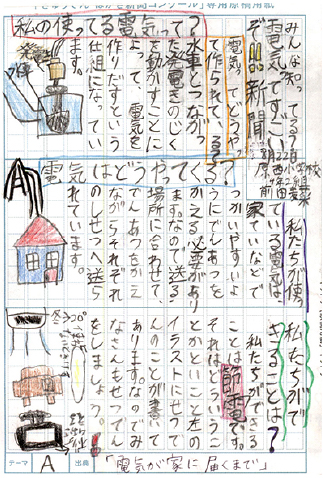 みんな知ってる？
電気ってすごいぞ！
新聞
私の使ってる電気って？
電気ってどうやって作られている？
水車とつながった発電きのじくを動かすことによって、電気を作りだすという仕組になっています。
電気はどうやってくる？
私たちが使っている電気は、家でなどでつかいやすいようにでんあつをかえる必要があります。なので送る場所に合わせて、でんあつをかえながらそれぞれのしせつへ送られています。
私たちができることは？
私たちができることは
節電です。
それはどういうことかというと左のイラストにせつでんのことが書いてあります。なのでみなさんもせつでんをしましょう。
テーマ
A
出典
「電気が家に届くまで」